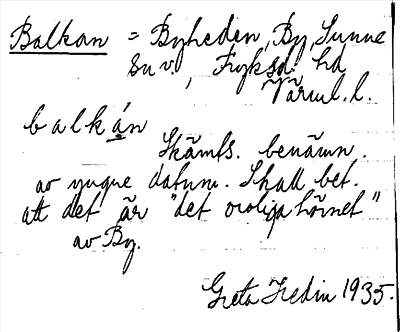 Balkan = Byheden, By, Sunne
sn v., Fryksd. hd
Värml. l.
balkán
Skämts. benämn.
av yngre datum. Skall bet.
att det är "det oroliga hörnet"
av By.
Greta Hedin 1935.